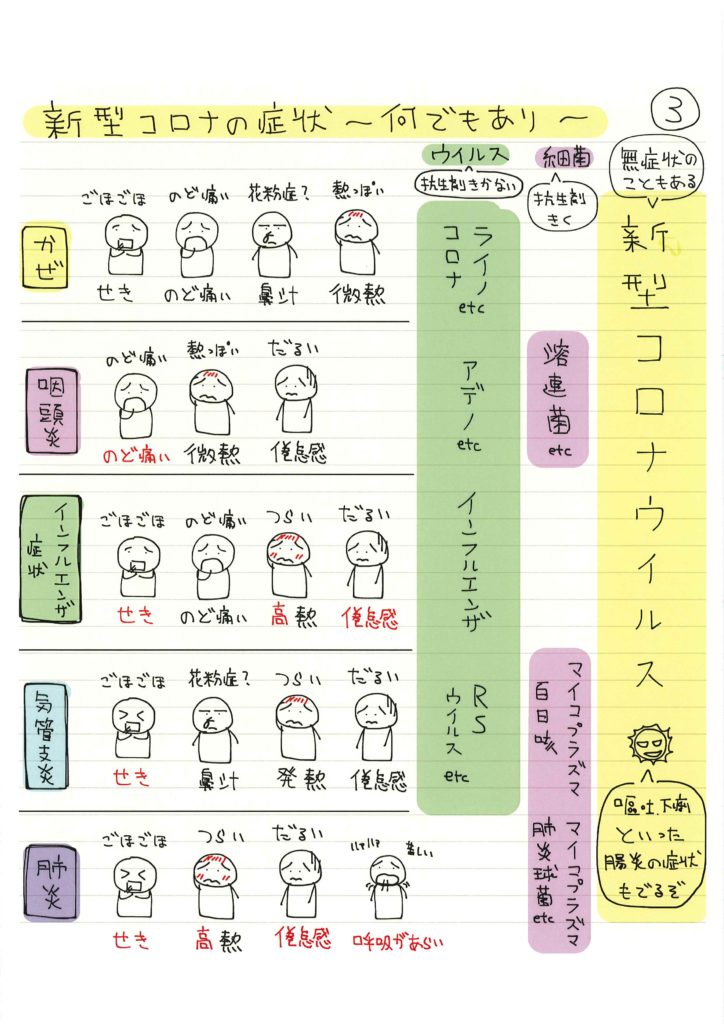 ③
新型コロナの症状〜何でもあり〜
ウイルス
抗生剤きかない
細菌
抗生剤
きく
無症状の
こともある
かぜ
ごほごほ のど痛い 花粉症? 熱っぽい
せき のど痛い 鼻汁 微熱
ライノ
コロナ
etc
咽頭炎
のど痛い 熱っぽい だるい
のど痛い 微熱 倦怠感
アデノ
etc
溶連菌
etc
インフルエンザ
症状
ごほごほ のど痛い つらい だるい
せき のど痛い 高熱 倦怠感
インフルエンザ
気管支炎
ごほごほ 花粉症? つらい だるい
せき 鼻汁 発熱 倦怠感
RS
ウイルス
etc
マイコプラズマ
百日咳
肺炎
ごほごほ つらい だるい ハァハァ 苦しい
せき 高熱 倦怠感 呼吸があらい
マイコプラズマ
肺炎球菌
etc
新型コロナウイルス
嘔吐、下痢
といった
腸炎の症状
もでるぞ